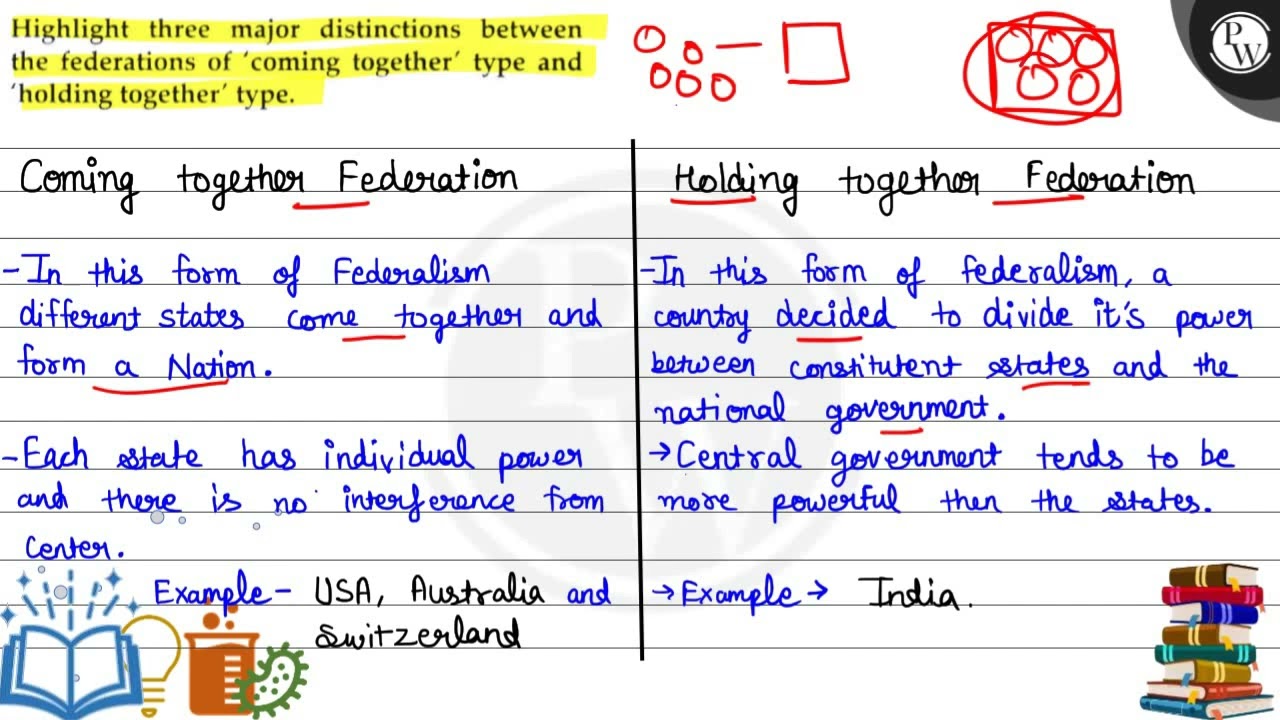 Highlight three major distinctions between
the federations of 'coming together' type and
'holding together' type.
PW
Coming together Federation
- In this form of Federalism
different states come together and
form a Nation.
- Each state has individual power
and there is no interference from
Center.
Example - USA, Australia and
Switzerland
Holding together Federation
- In this form of federalism, a
country decided to divide it's power
between constitutent states and the
national government.
→ Central government tends to be
more powerful then the states.
→ Example → India.